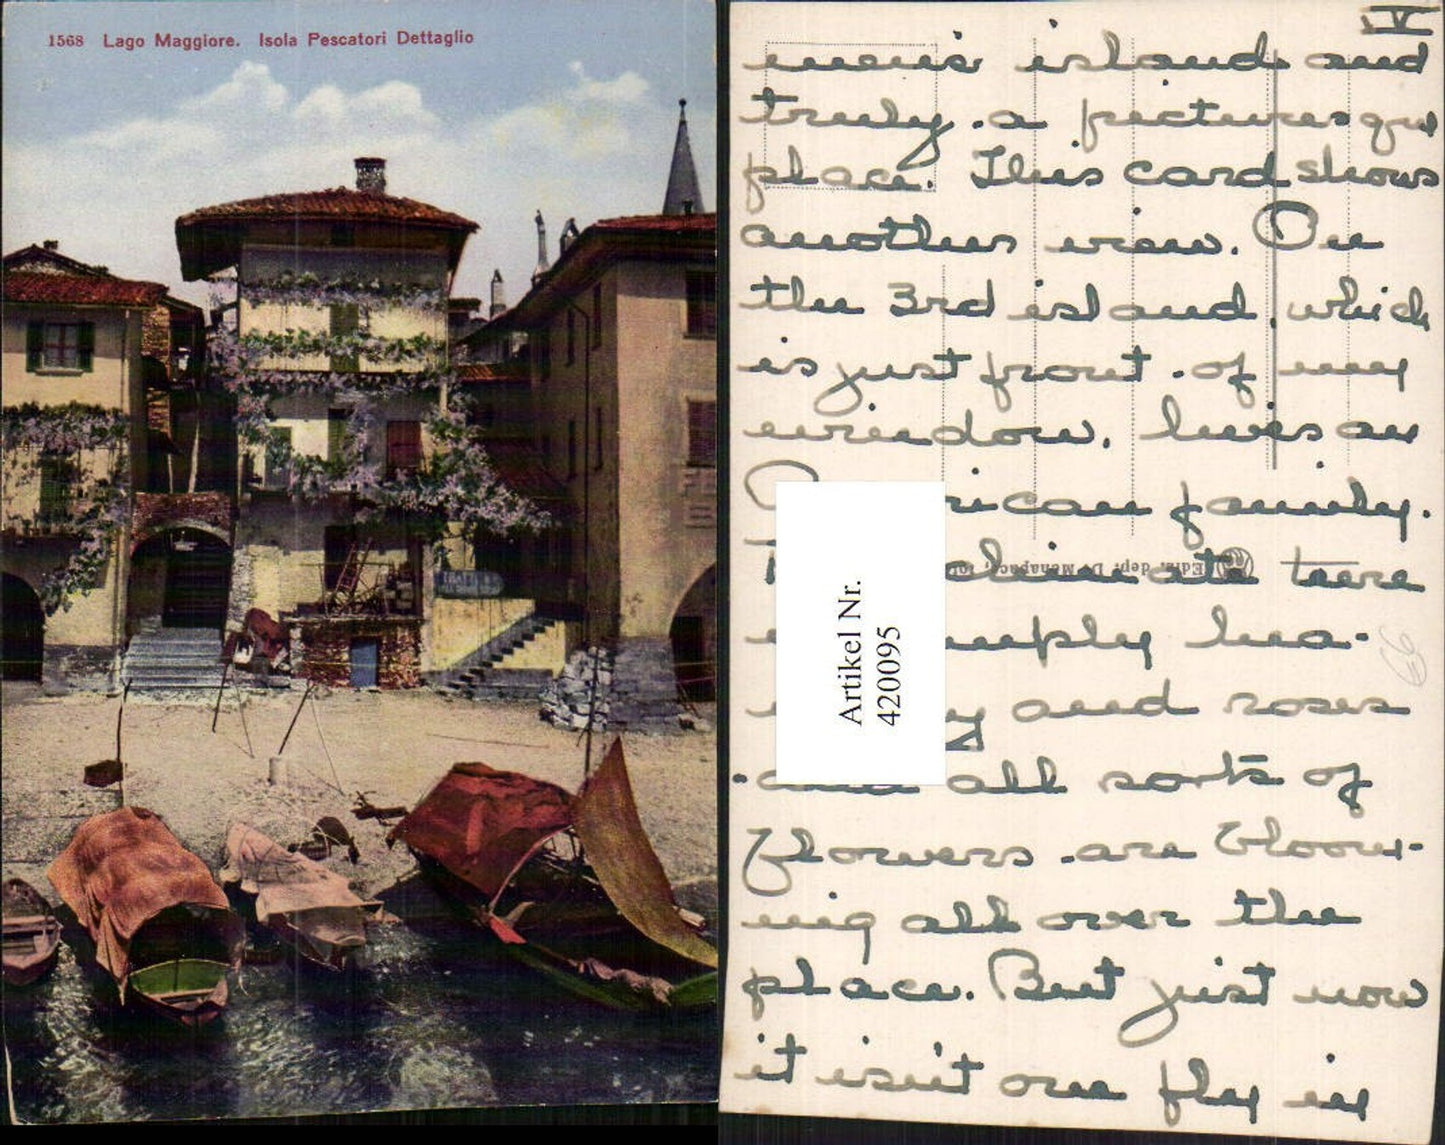 1568 Lago Maggiore. Isola Pescatori Dettaglio
IV
men's island and
truly a picturesque
place. This card shows
another view. On
the 3rd island, which
is just front of my
window, lives an
rican family.
climate here
mply hea-
y and roses
and all sorts of
flowers are bloom-
ing all over the
place. But just now
it isn't one fly in
Artikel Nr.
420095